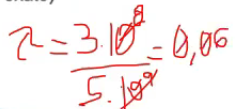 λ = 3.10⁸ / 5.10⁹ = 0,06